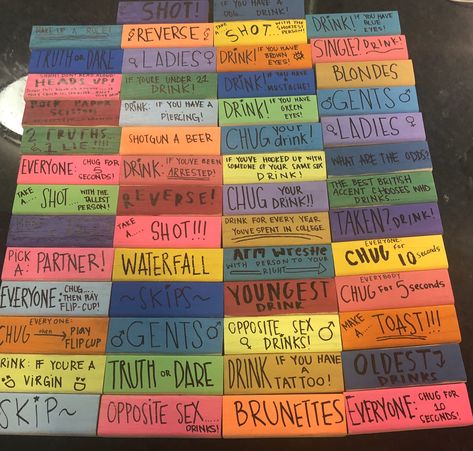 SHOT!
DRINK!
MAKE UP A RULE!
REVERSE
TAKE A... SHOT WITH THE SHORTEST PERSON!
DRINK! IF YOU HAVE BLUE EYES!
TRUTH OR DARE
LADIES
DRINK! IF YOU HAVE BROWN EYES!
SINGLE? DRINK!
HEADS UP!
IF YOU'RE UNDER 21 DRINK!
DRINK! IF YOU HAVE A MUSTACHE!
BLONDES
ROCK PAPER SCISSORS
DRINK: IF YOU HAVE A PIERCING!
DRINK! IF YOU HAVE GREEN EYES!
GENTS
2 TRUTHS & 1 LIE!!!!
SHOTGUN A BEER
CHUG your drink!
LADIES
EVERYONE: CHUG FOR 5 SECONDS!
DRINK: IF YOU'VE BEEN ARRESTED!
IF YOU'VE HOOKED UP WITH SOMEONE OF YOUR SAME SEX DRINK
WHAT ARE THE ODDS?
TAKE A... SHOT WITH THE TALLEST PERSON!
REVERSE!
CHUG YOUR DRINK!!
THE BEST BRITISH ACCENT CHOOSES WHO DRINKS....
TAKE A.... SHOT!!!
DRINK FOR EVERY YEAR YOU'VE SPENT IN COLLEGE
TAKEN? DRINK!
PICK A: PARTNER!
WATERFALL
ARM WRESTLE WITH PERSON TO YOUR RIGHT
EVERYONE: CHUG for 10 seconds
EVERYONE: CHUG... THEN PLAY FLIP-CUP!
~SKIPS~
YOUNGEST DRINK
EVERYBODY CHUG FOR 5 seconds
EVERYONE: CHUG then PLAY FLIP CUP
GENTS
OPPOSITE SEX DRINKS!
MAKE A.... TOAST!!!
DRINK: IF YOU'RE A VIRGIN
TRUTH OR DARE
DRINK IF YOU HAVE A TATTOO!
OLDEST DRINKS
SKIP~
OPPOSITE SEX..... DRINKS!
BRUNETTES
EVERYONE: CHUG FOR 10 SECONDS!